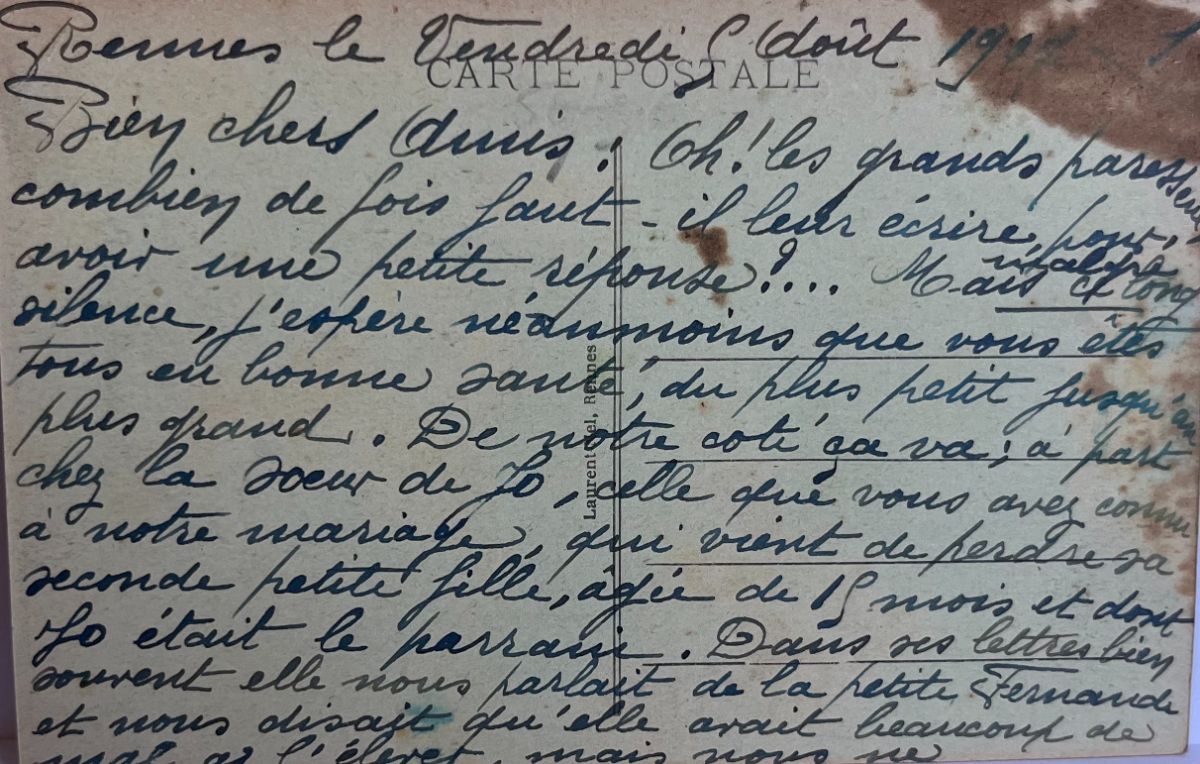 Rennes le Vendredi 5 Août
CARTE POSTALE
Bien chers Amis. Oh! les grands paresseux,
combien de fois faut-il leur écrire, pour
avoir une petite réponse?.... Mais malgré ce long
silence, j'espère néanmoins que vous êtes
tous en bonne santé, du plus petit jusqu'au
plus grand. De notre coté ça va; à part
chez la sœur de Jo, celle que vous avez connu
à notre mariage, qui vient de perdre sa
seconde petite fille, âgée de 15 mois et dont
Jo était le parrain. Dans ses lettres bien
souvent elle nous parlait de la petite Fernande
et nous disait qu'elle avait beaucoup de
mal à l'élever, mais nous ne
Rennes